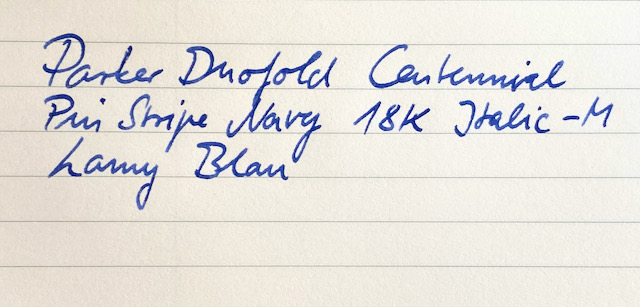 Parker Duofold Centennial
Pin Stripe Navy 18K Italic-M
Lamy Blau